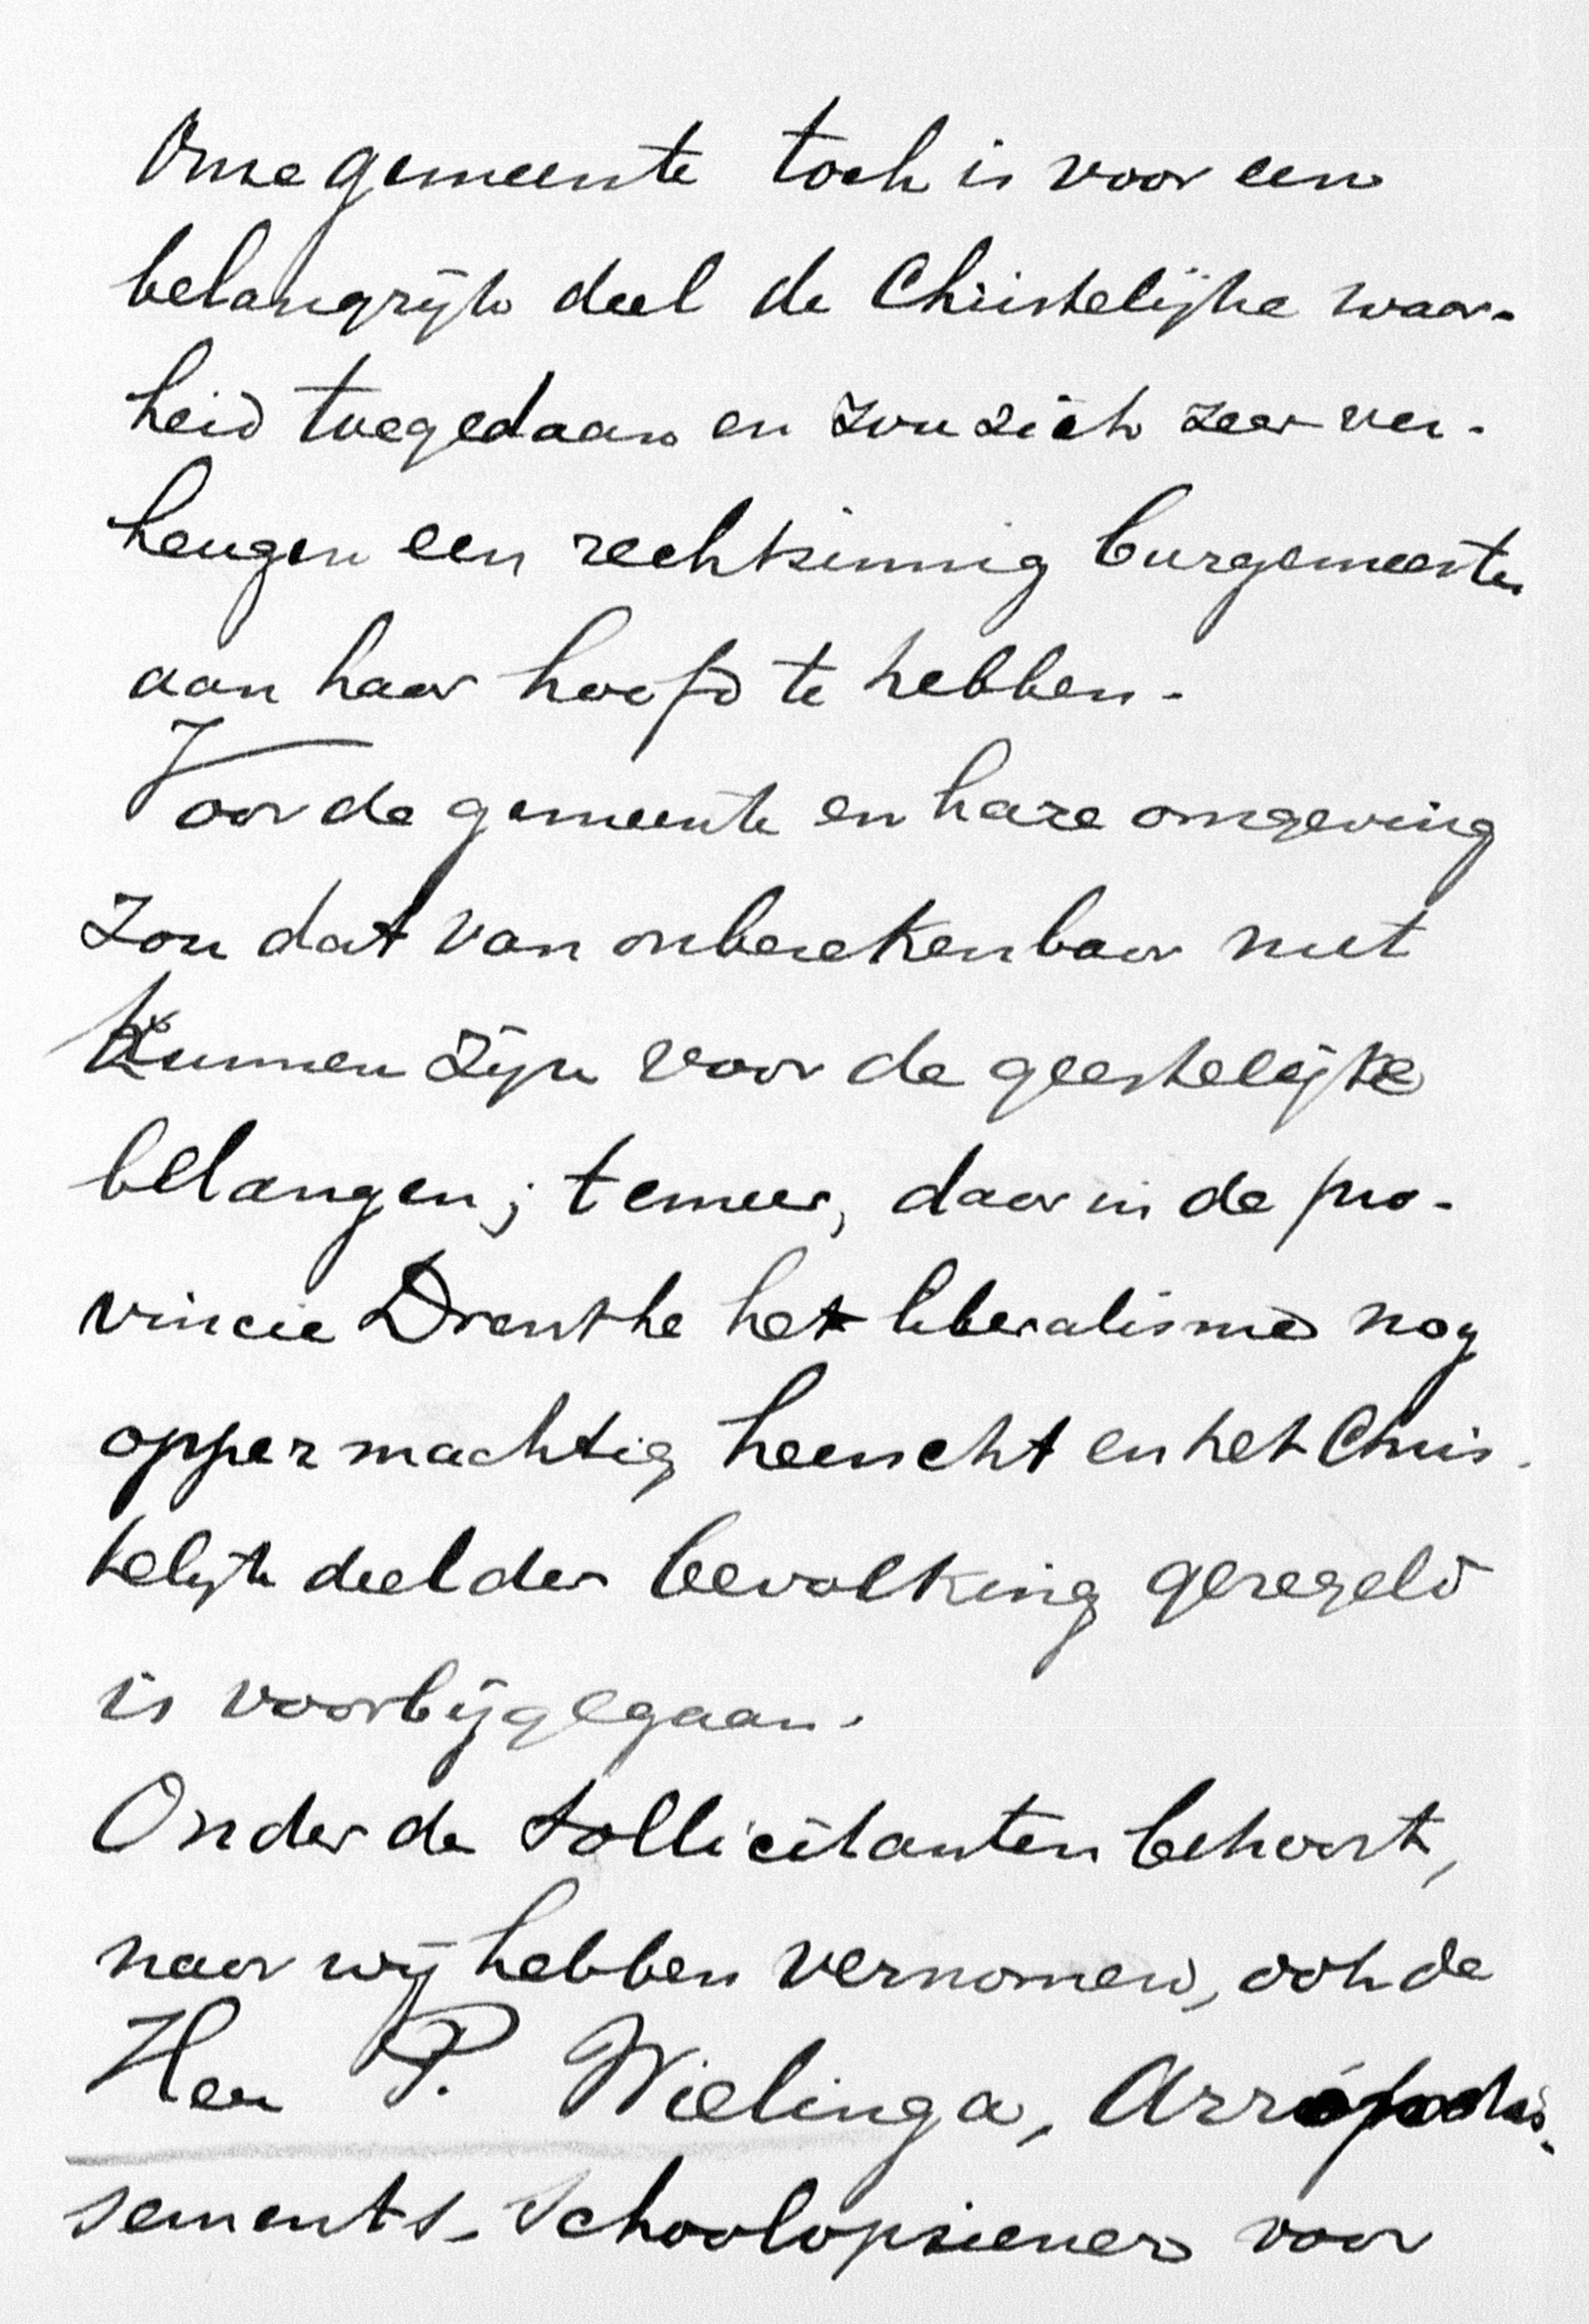 Onze gemeente toch is voor een
belangrijk deel de Christelijke waar-
heid toegedaan en zou zich zeer ver-
heugen een rechtzinnig burgemeester
aan haar hoofd te hebben.
Voor de gemeente en hare omgeving
zou dat van onberekenbaar nut
kunnen zijn voor de geestelijke
belangen; temeer, daar in de pro-
vincie Drenthe het liberalisme nog
oppermachtig heerscht en het Chris-
telijk deel der bevolking geregeld
is voorbijgegaan.
Onder de sollicitanten behoort,
naar wij hebben vernomen, ook de
Heer P. Wielinga, Arrondis-
sements-Schoolopziener voor